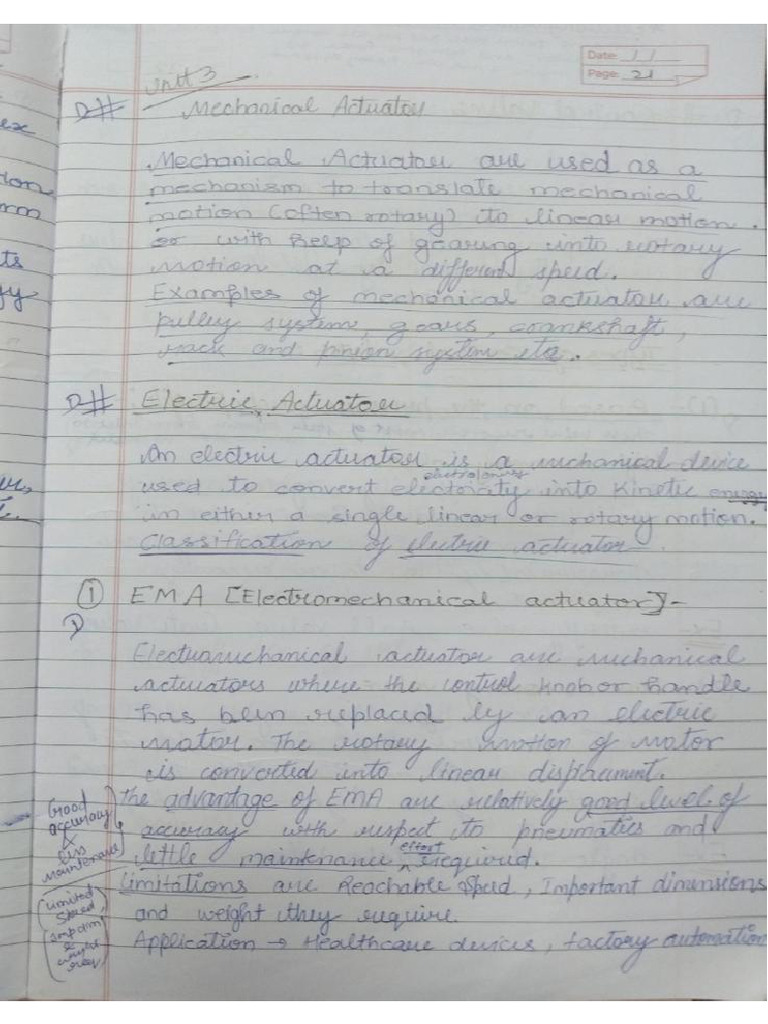 Date: / /
Page: 21
Unit 3
Mechanical Actuator
Mechanical Actuator are used as a
mechanism to translate mechanical
motion (often rotary) to linear motion.
or with help of gearing into rotary
motion at a different speed.
Examples of mechanical actuator are
pulley system, gears, crankshaft,
rack and pinion system etc.
Electric Actuator
An electric actuator is a mechanical device
used to convert electricity into kinetic energy
in either a single linear or rotary motion.
Classification of electric actuator
① EMA [Electromechanical actuator]-
Electromechanical actuator are mechanical
actuators where the control knob or handle
has been replaced by an electric
motor. The rotary motion of motor
is converted into linear displacement.
The advantage of EMA are relatively good level of
accuracy with respect to pneumatics and
little maintenance effort required.
Limitations are Reachable Speed, Important dimensions
and weight they require.
Application → Healthcare devices, factory automation
Good
accuracy
&
less
maintenance
limited
speed,